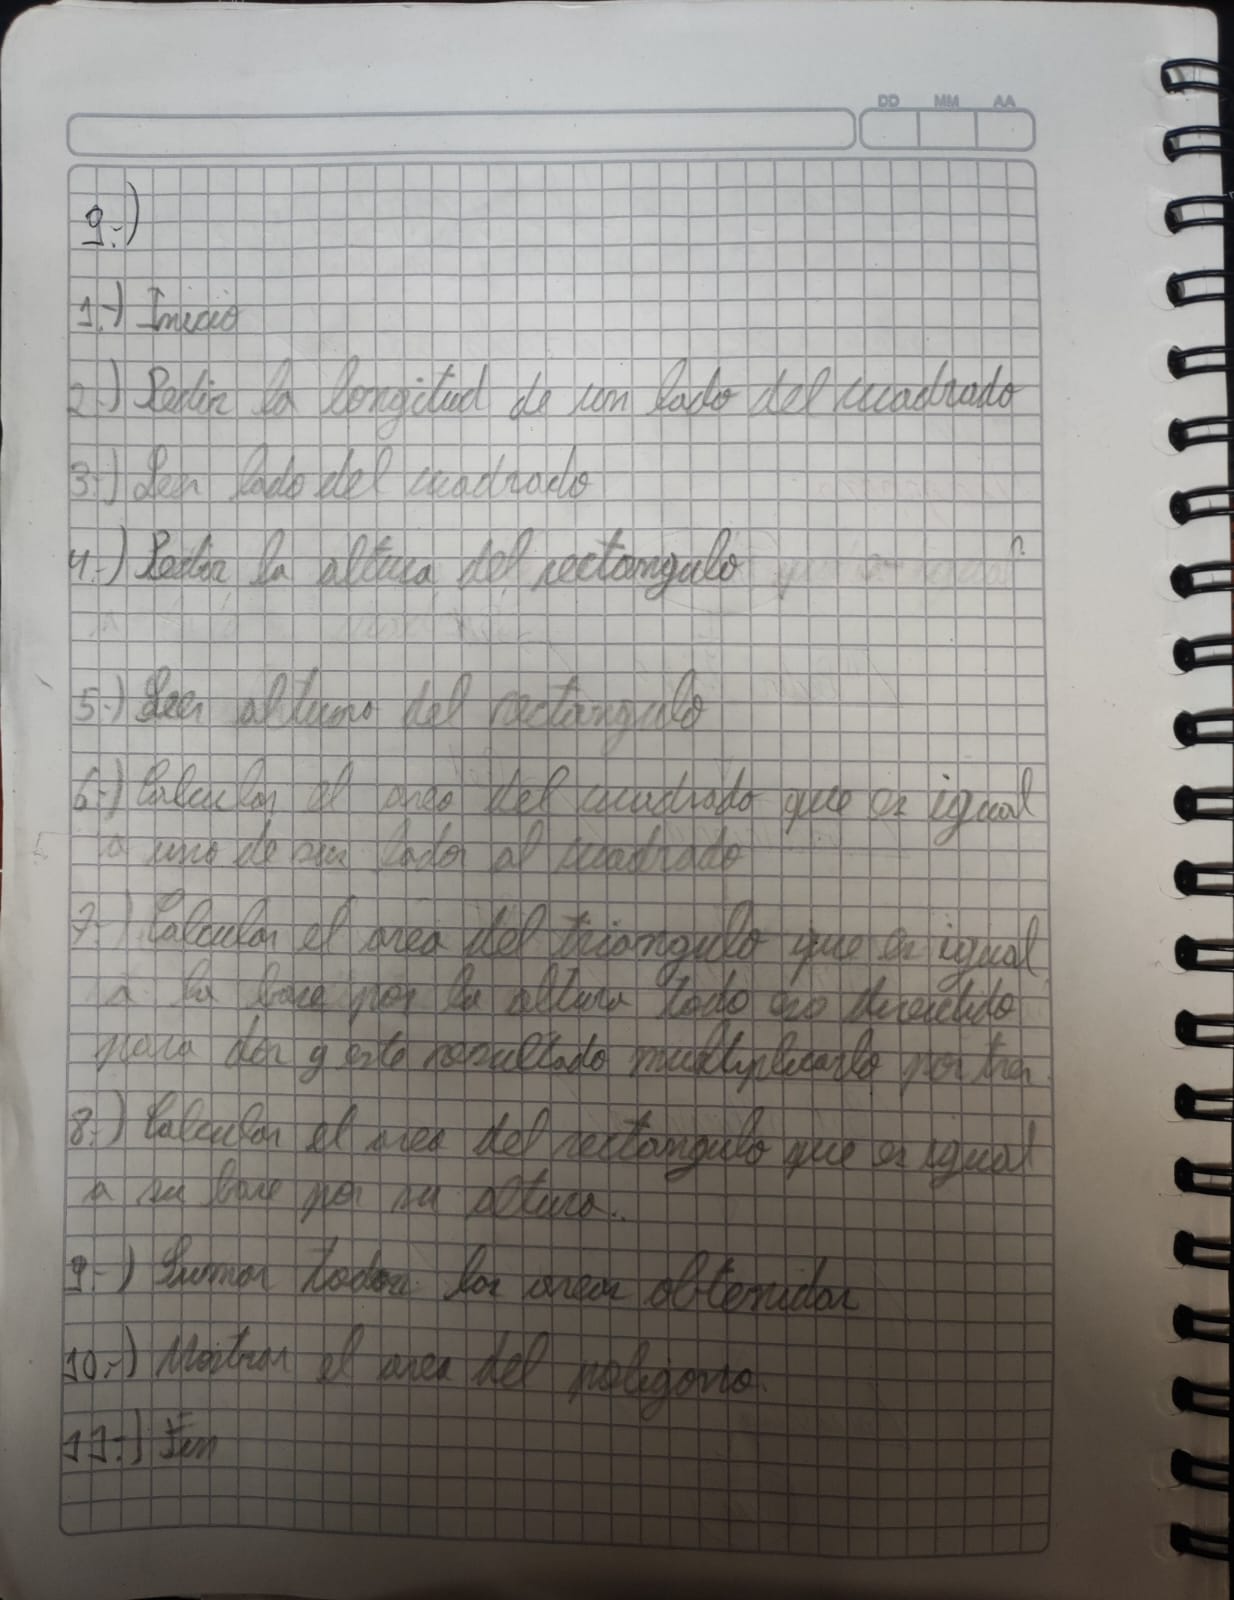 DD MM AA
9.-)
1.-) Inicio
2.-) Pedir la longitud de un lado del cuadrado
3.-) Leer lado del cuadrado
4.-) Pedir la altura del rectangulo
5.-) Leer altura del rectangulo
6.-) Calcular el area del cuadrado que es igual
a uno de sus lados al cuadrado
7.-) Calcular el area del triangulo que es igual
a la base por la altura todo eso dividido
para dos y este resultado multiplicarlo por tres.
8.-) Calcular el area del rectangulo que es igual
a su base por su altura..
9.-) Sumar todas las areas obtenidas
10.-) Mostrar el area del poligono.
11.-) Fin